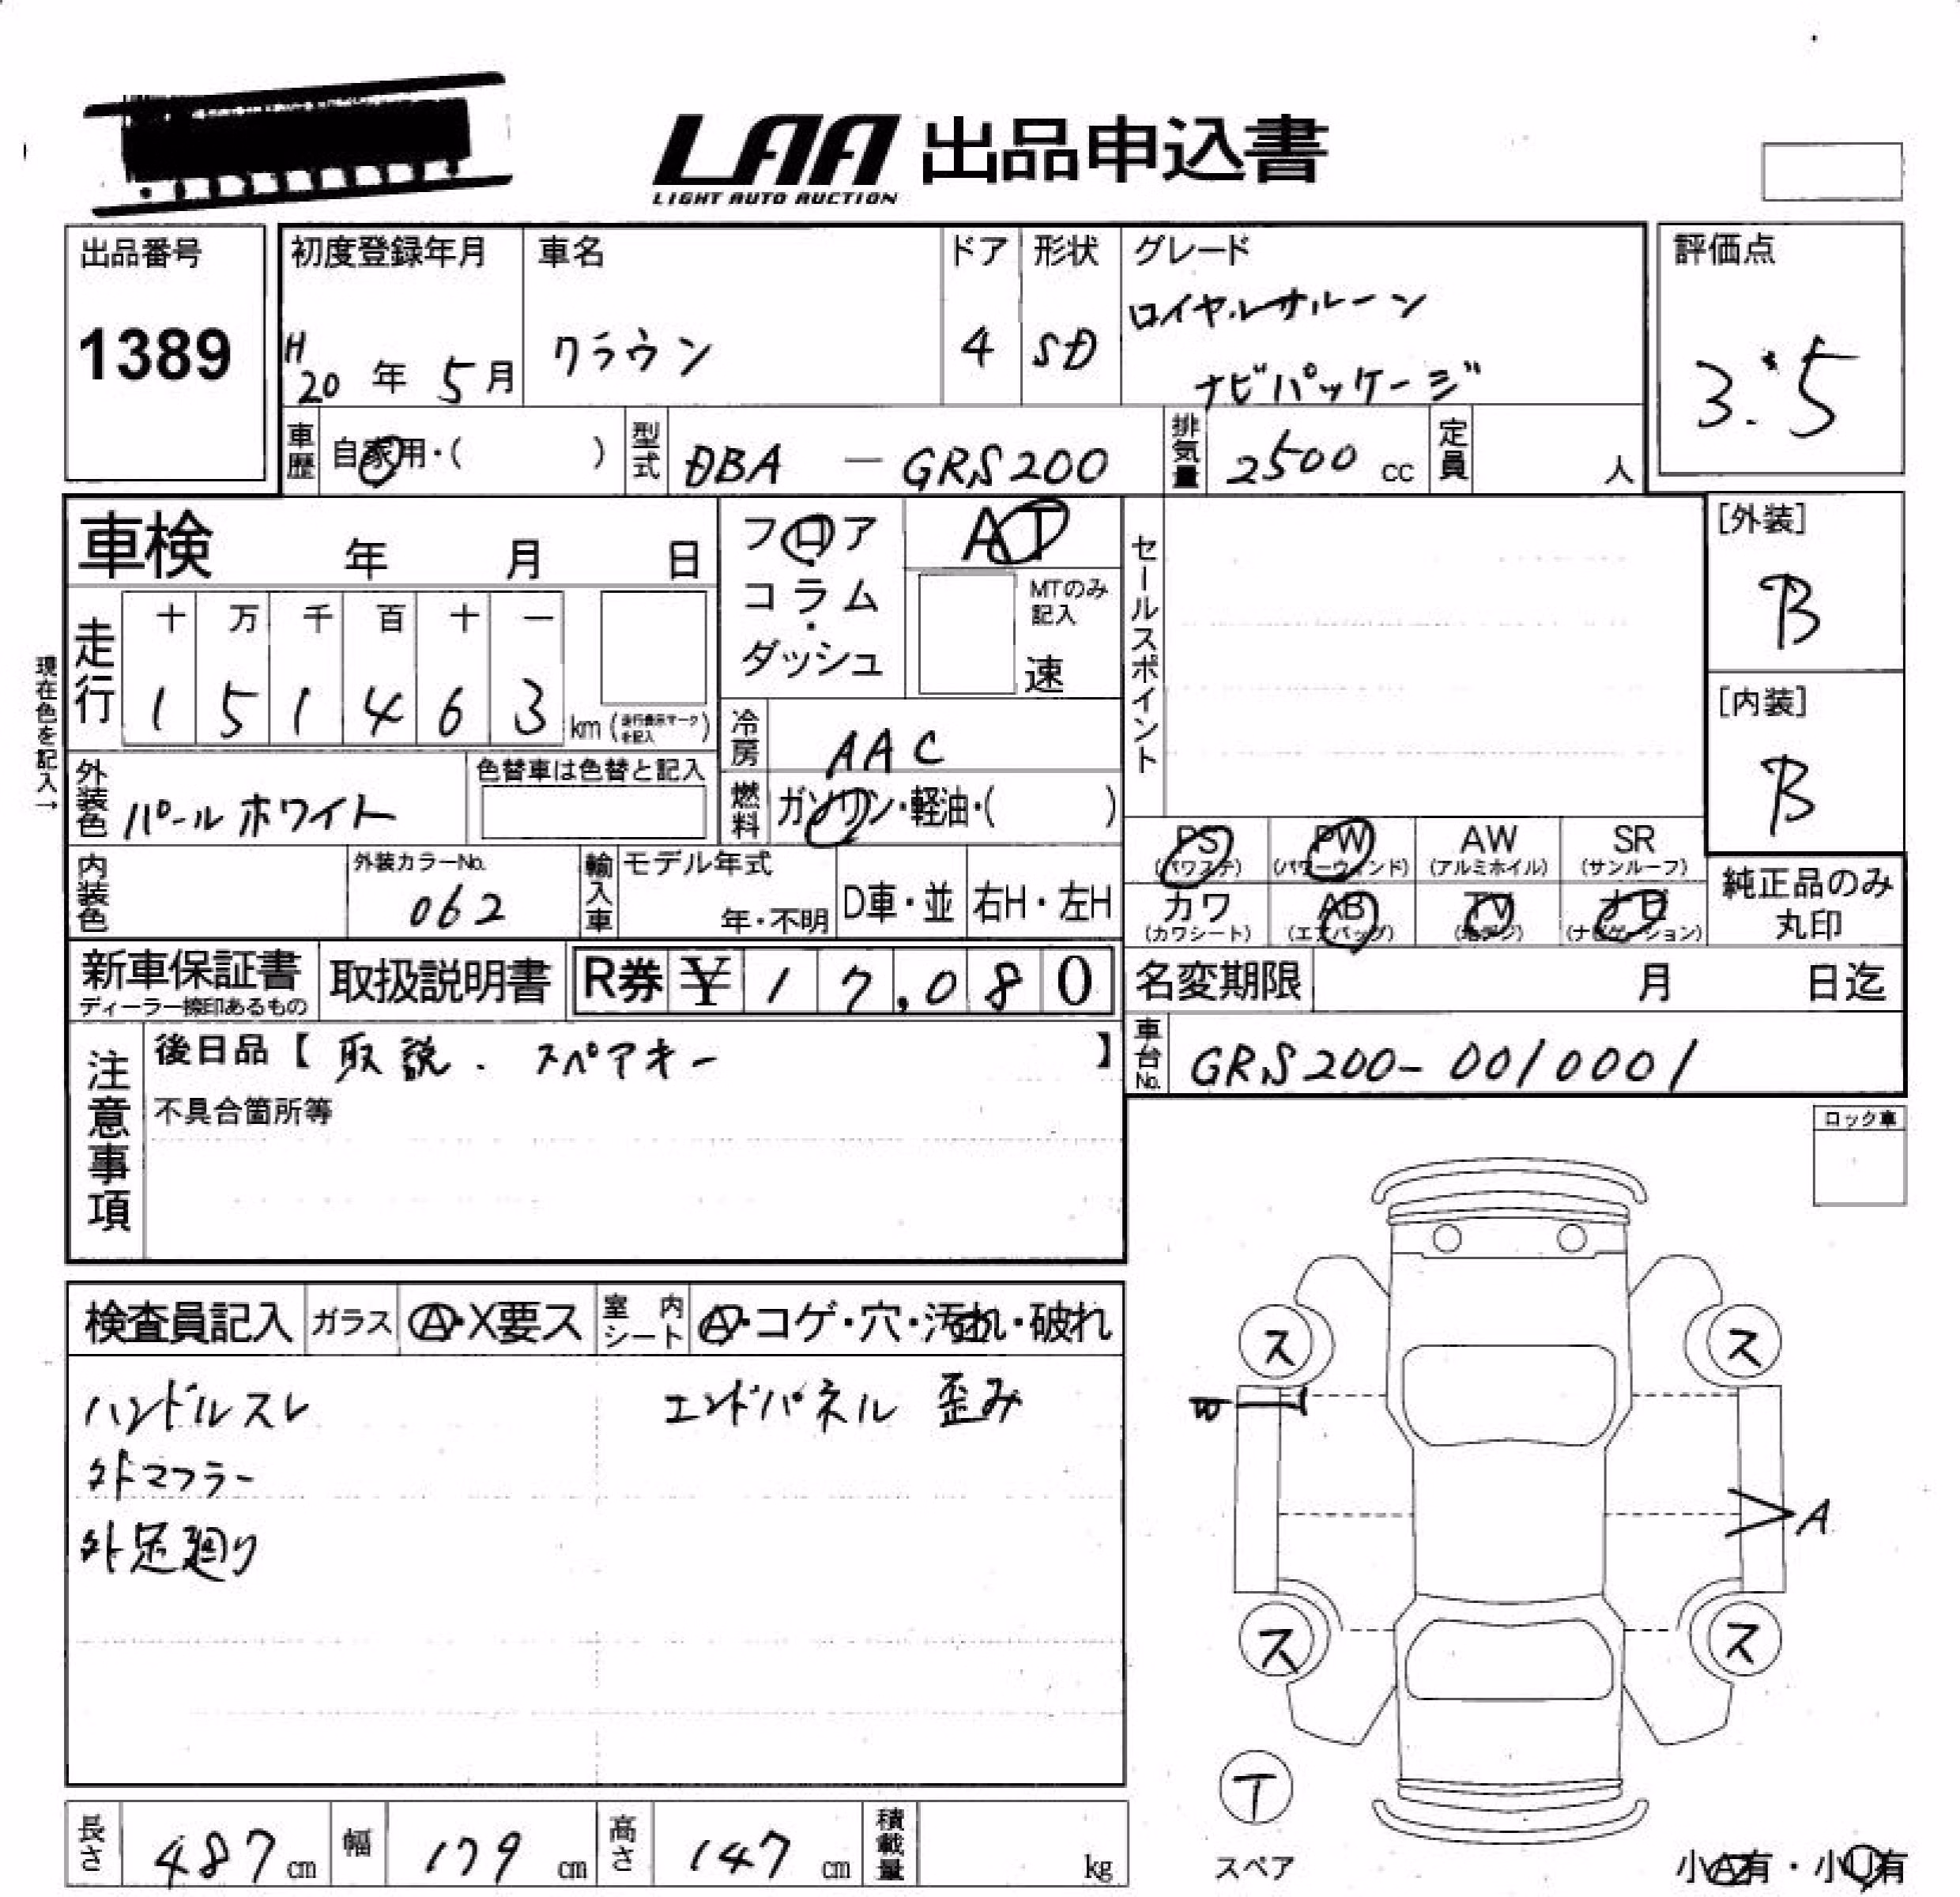 LAA 出品申込書
LIGHT AUTO AUCTION
出品番号
1389
初度登録年月
H20年 5月
車名
クラウン
ドア
4
形状
SD
グレード
ロイヤルサルーン
ナビパッケージ
評価点
3.5
車歴 自家用・( )
型式 DBA - GRS200
排気量 2500 cc
定員 人
車検 年 月 日
フロア・コラム・ダッシュ
AT
MTのみ記入
速
セールスポイント
[外装]
B
[内装]
B
現在色を記入→
走行
十 万 千 百 十 一
1 5 1 4 6 3 km (走行表示マークを記入)
冷房 AAC
外装色 パールホワイト
色替車は色替と記入
燃料 ガソリン・軽油・( )
PS (パワステ)
PW (パワーウィンド)
AW (アルミホイル)
SR (サンルーフ)
カワ (カワシート)
AB (エアバッグ)
TV (地デジ)
ナビ (ナビゲーション)
純正品のみ丸印
内装色
外装カラーNo.
062
輸入車
モデル年式
年・不明
D車・並
右H・左H
新車保証書
ディーラー捺印あるもの
取扱説明書
R券 ¥ 17,080
名変期限 月 日迄
車台No. GRS200-0010001
注意事項
後日品【 取説. スペアキー 】
不具合箇所等
ロック車
検査員記入
ガラス A・X要ス
室内シート A・コゲ・穴・汚れ・破れ
ハンドルスレ
エンドパネル 歪み
外マフラー
外足廻り
ス
ス
W
A
ス
ス
T
スペア
長さ 487 cm
幅 179 cm
高さ 147 cm
積載量 kg
小A有・小U有